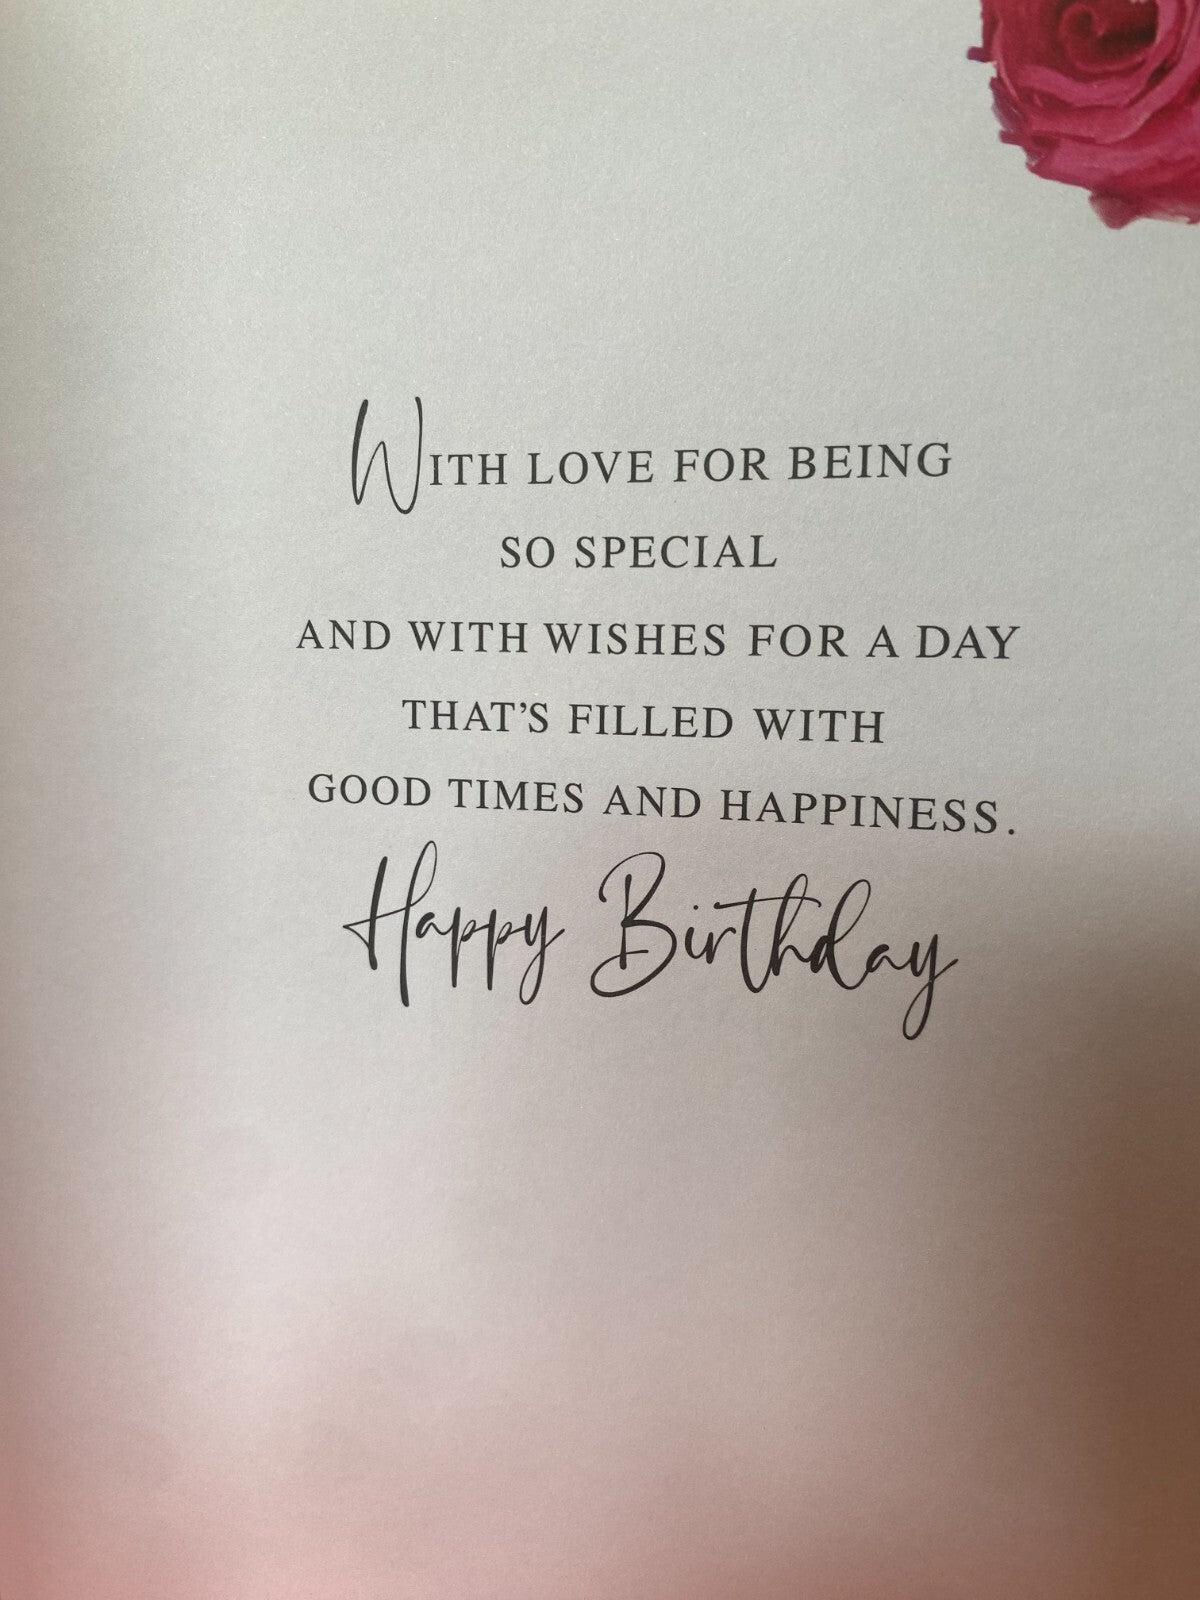 WITH LOVE FOR BEING
SO SPECIAL
AND WITH WISHES FOR A DAY
THAT'S FILLED WITH
GOOD TIMES AND HAPPINESS.
Happy Birthday